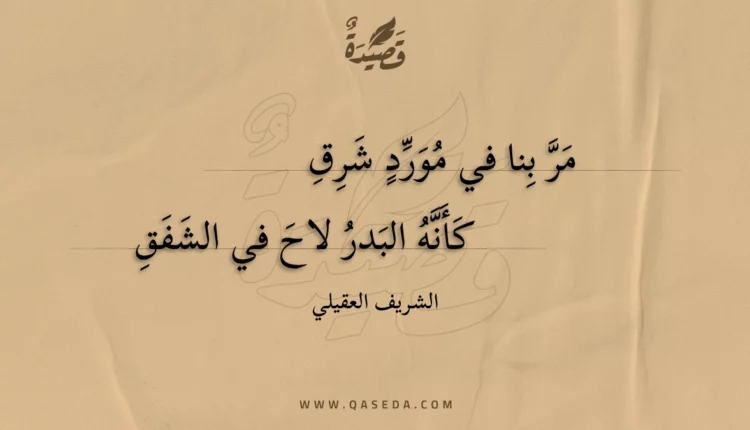 قَصِيدَةٌ
مَرَّ بِنا في مُوَرِّدٍ شَرِقِ
كَأَنَّهُ البَدرُ لاحَ في الشَفَقِ
الشريف العقيلي
WWW.QASEDA.COM